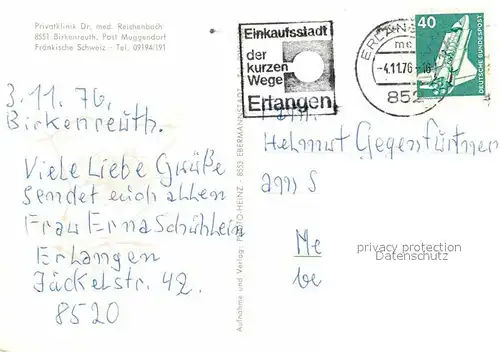 Privatklinik Dr. med. Reichenbach
8551 Birkenreuth, Post Muggendorf
Fränkische Schweiz - Tel. 09194/191
3.11.76.
Birkenreuth.
Viele Liebe Grüße
sendet euch allen
Frau Erna Schühlein
Erlangen
Jäckelstr. 42.
8520
Aufnahme und Verlag: PHOTO-HEINZ · 8553 EBERMANNSTADT
Einkaufsstadt
der
kurzen
Wege
Erlangen
ERLANGEN
-4.11.76-16
852
40
DEUTSCHE BUNDESPOST
Helmut Gegenfurtner
Me
be
privacy protection
Datenschutz